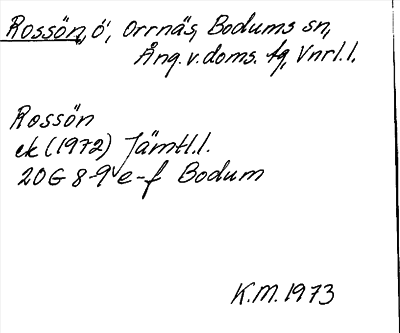 Rossön, ö, Orrnäs, Bodums sn,
Ång. v. doms. tg, Vnrl. l.
Rossön
ek (1972) Jämtl. l.
20G 8-9 e-f Bodum
K.M. 1973